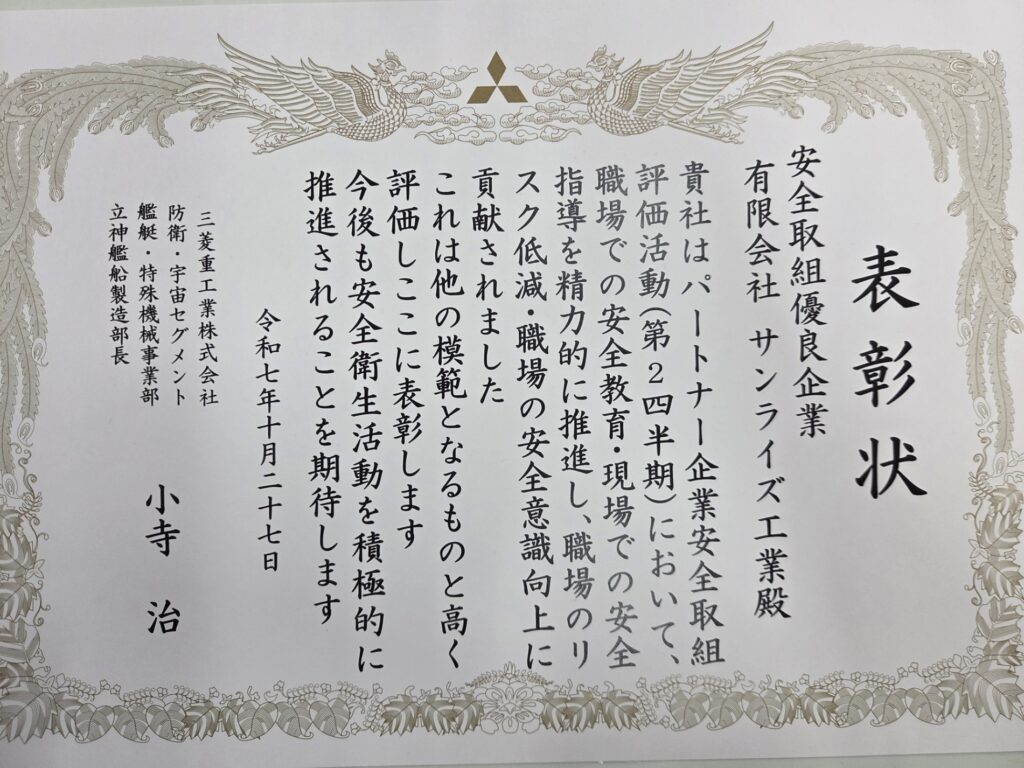 表彰状
安全取組優良企業
有限会社 サンライズ工業殿
貴社はパートナー企業安全取組
評価活動(第2四半期)において、
職場での安全教育・現場での安全
指導を精力的に推進し、職場のリ
スク低減・職場の安全意識向上に
貢献されました
これは他の模範となるものと高く
評価しここに表彰します
今後も安全衛生活動を積極的に
推進されることを期待します
令和七年十月二十七日
三菱重工業株式会社
防衛・宇宙セグメント
艦艇・特殊機械事業部
立神艦船製造部長
小寺 治